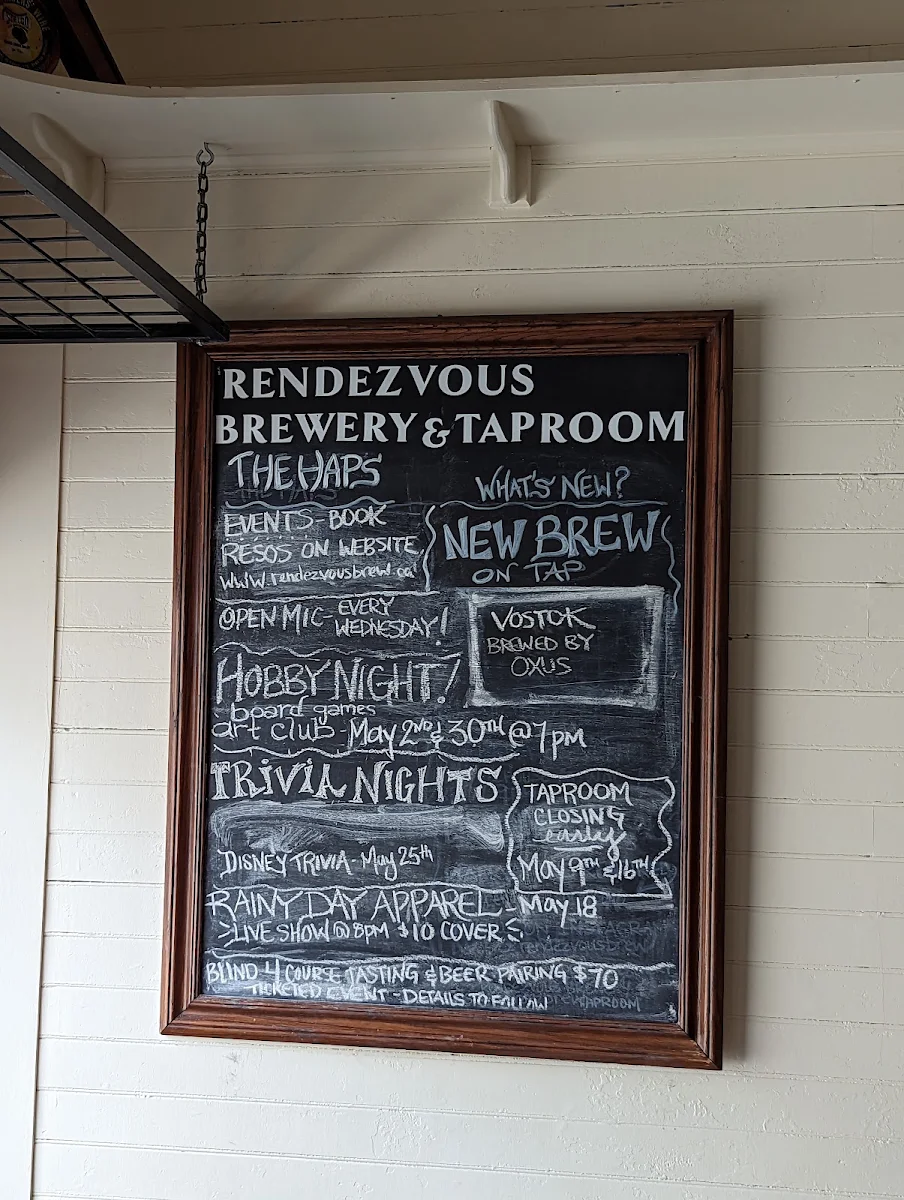 RENDEZVOUS
BREWERY & TAPROOM
THE HAPS
EVENTS - BOOK
RESOS ON WEBSITE
www.rendezvousbrew.ca
OPEN MIC - EVERY
WEDNESDAY!
HOBBY NIGHT!
board games
art club - May 2ND & 30TH @ 7pm
TRIVIA NIGHTS
DISNEY TRIVIA - May 25th
WHAT'S NEW?
NEW BREW
ON TAP
VOSTOK
BREWED BY
OXUS
TAPROOM
CLOSING
early
May 9TH & 16TH
RAINY DAY APPAREL - May 18
LIVE SHOW @ 8PM $10 COVER
BLIND 4 COURSE TASTING & BEER PAIRING $70
TICKETED EVENT - DETAILS TO FOLLOW